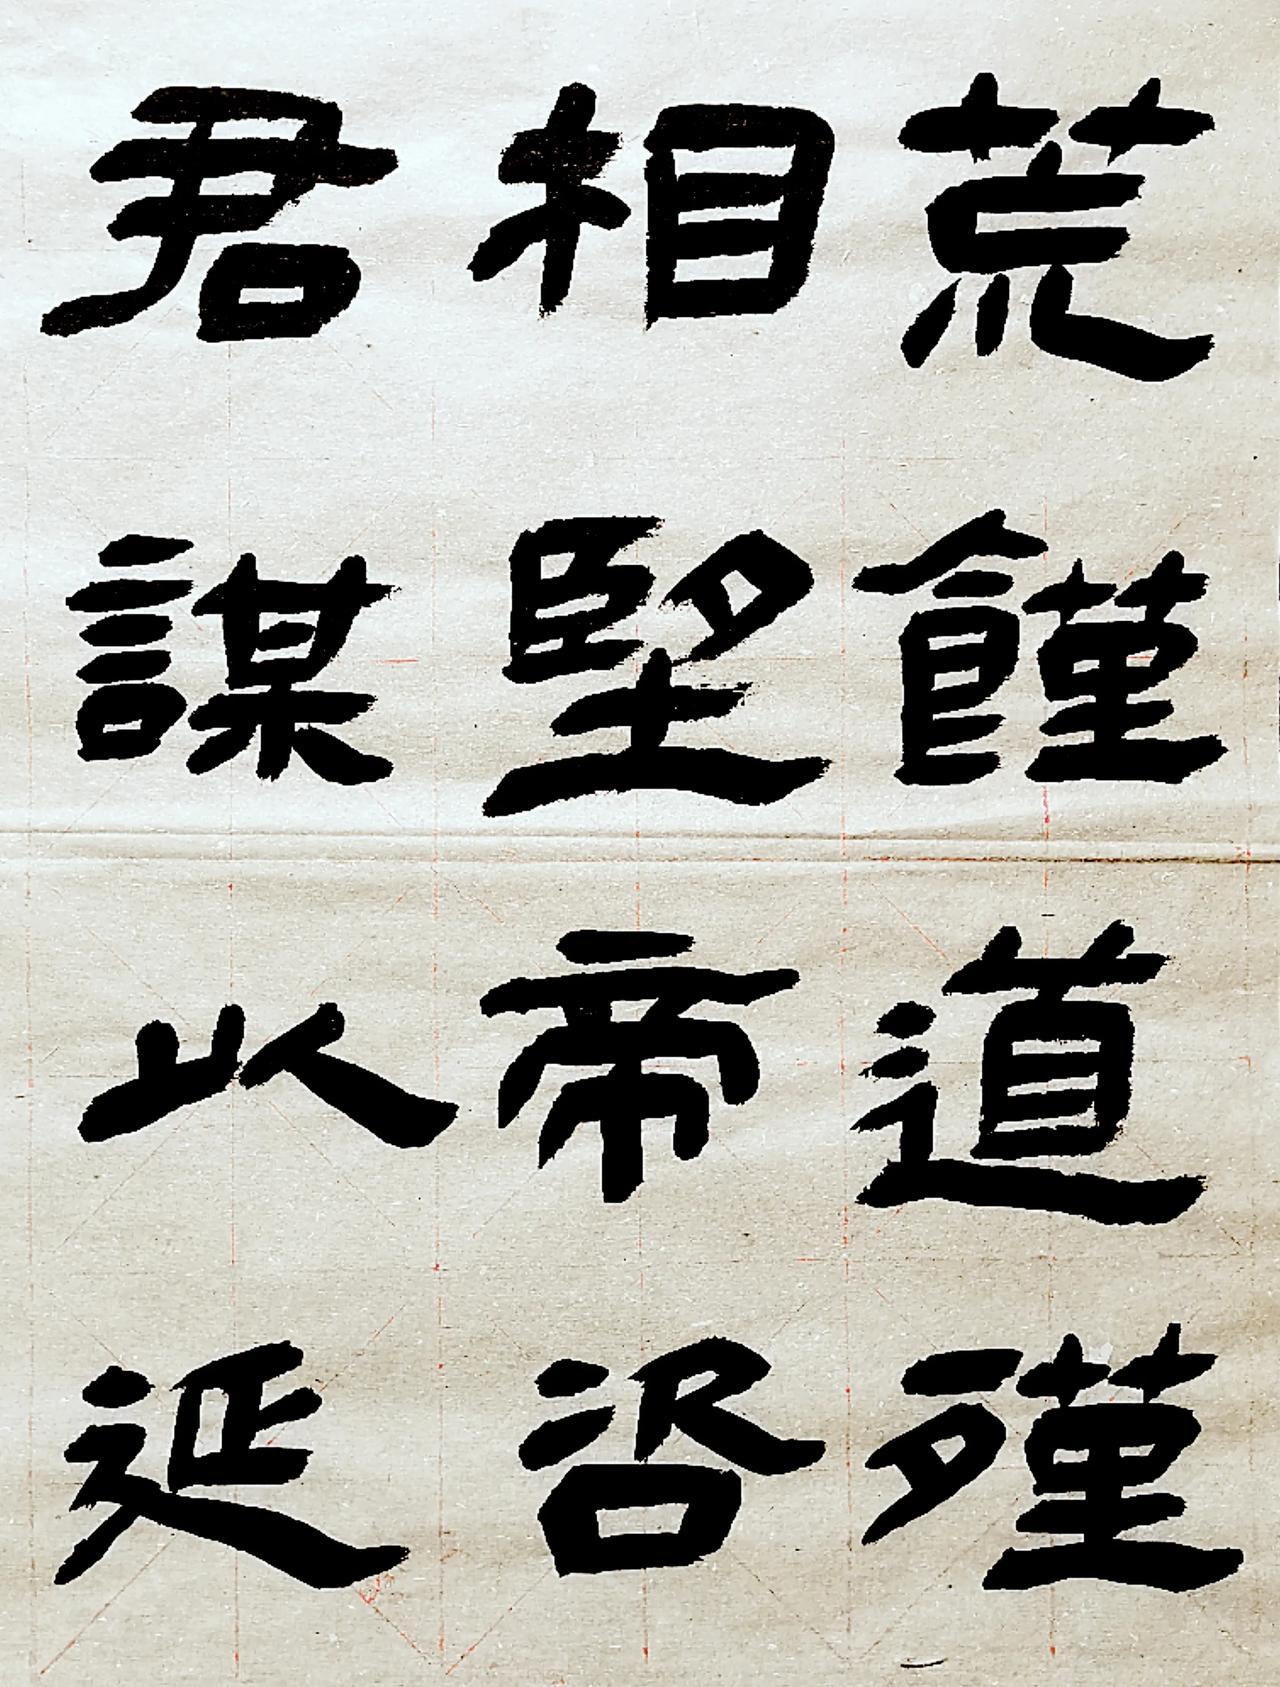 荒饉道殣
相堅帝咨
君謀以延